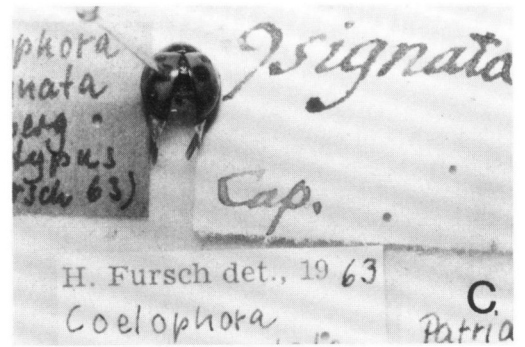 ophora
nata
berg
typus
rsch 63)
signata
Cap.
H. Fursch det., 19 63
Coelophora
Patria
C